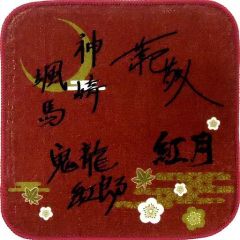 蓮巳敬人
紅月
神崎
颯馬
鬼龍
紅郎